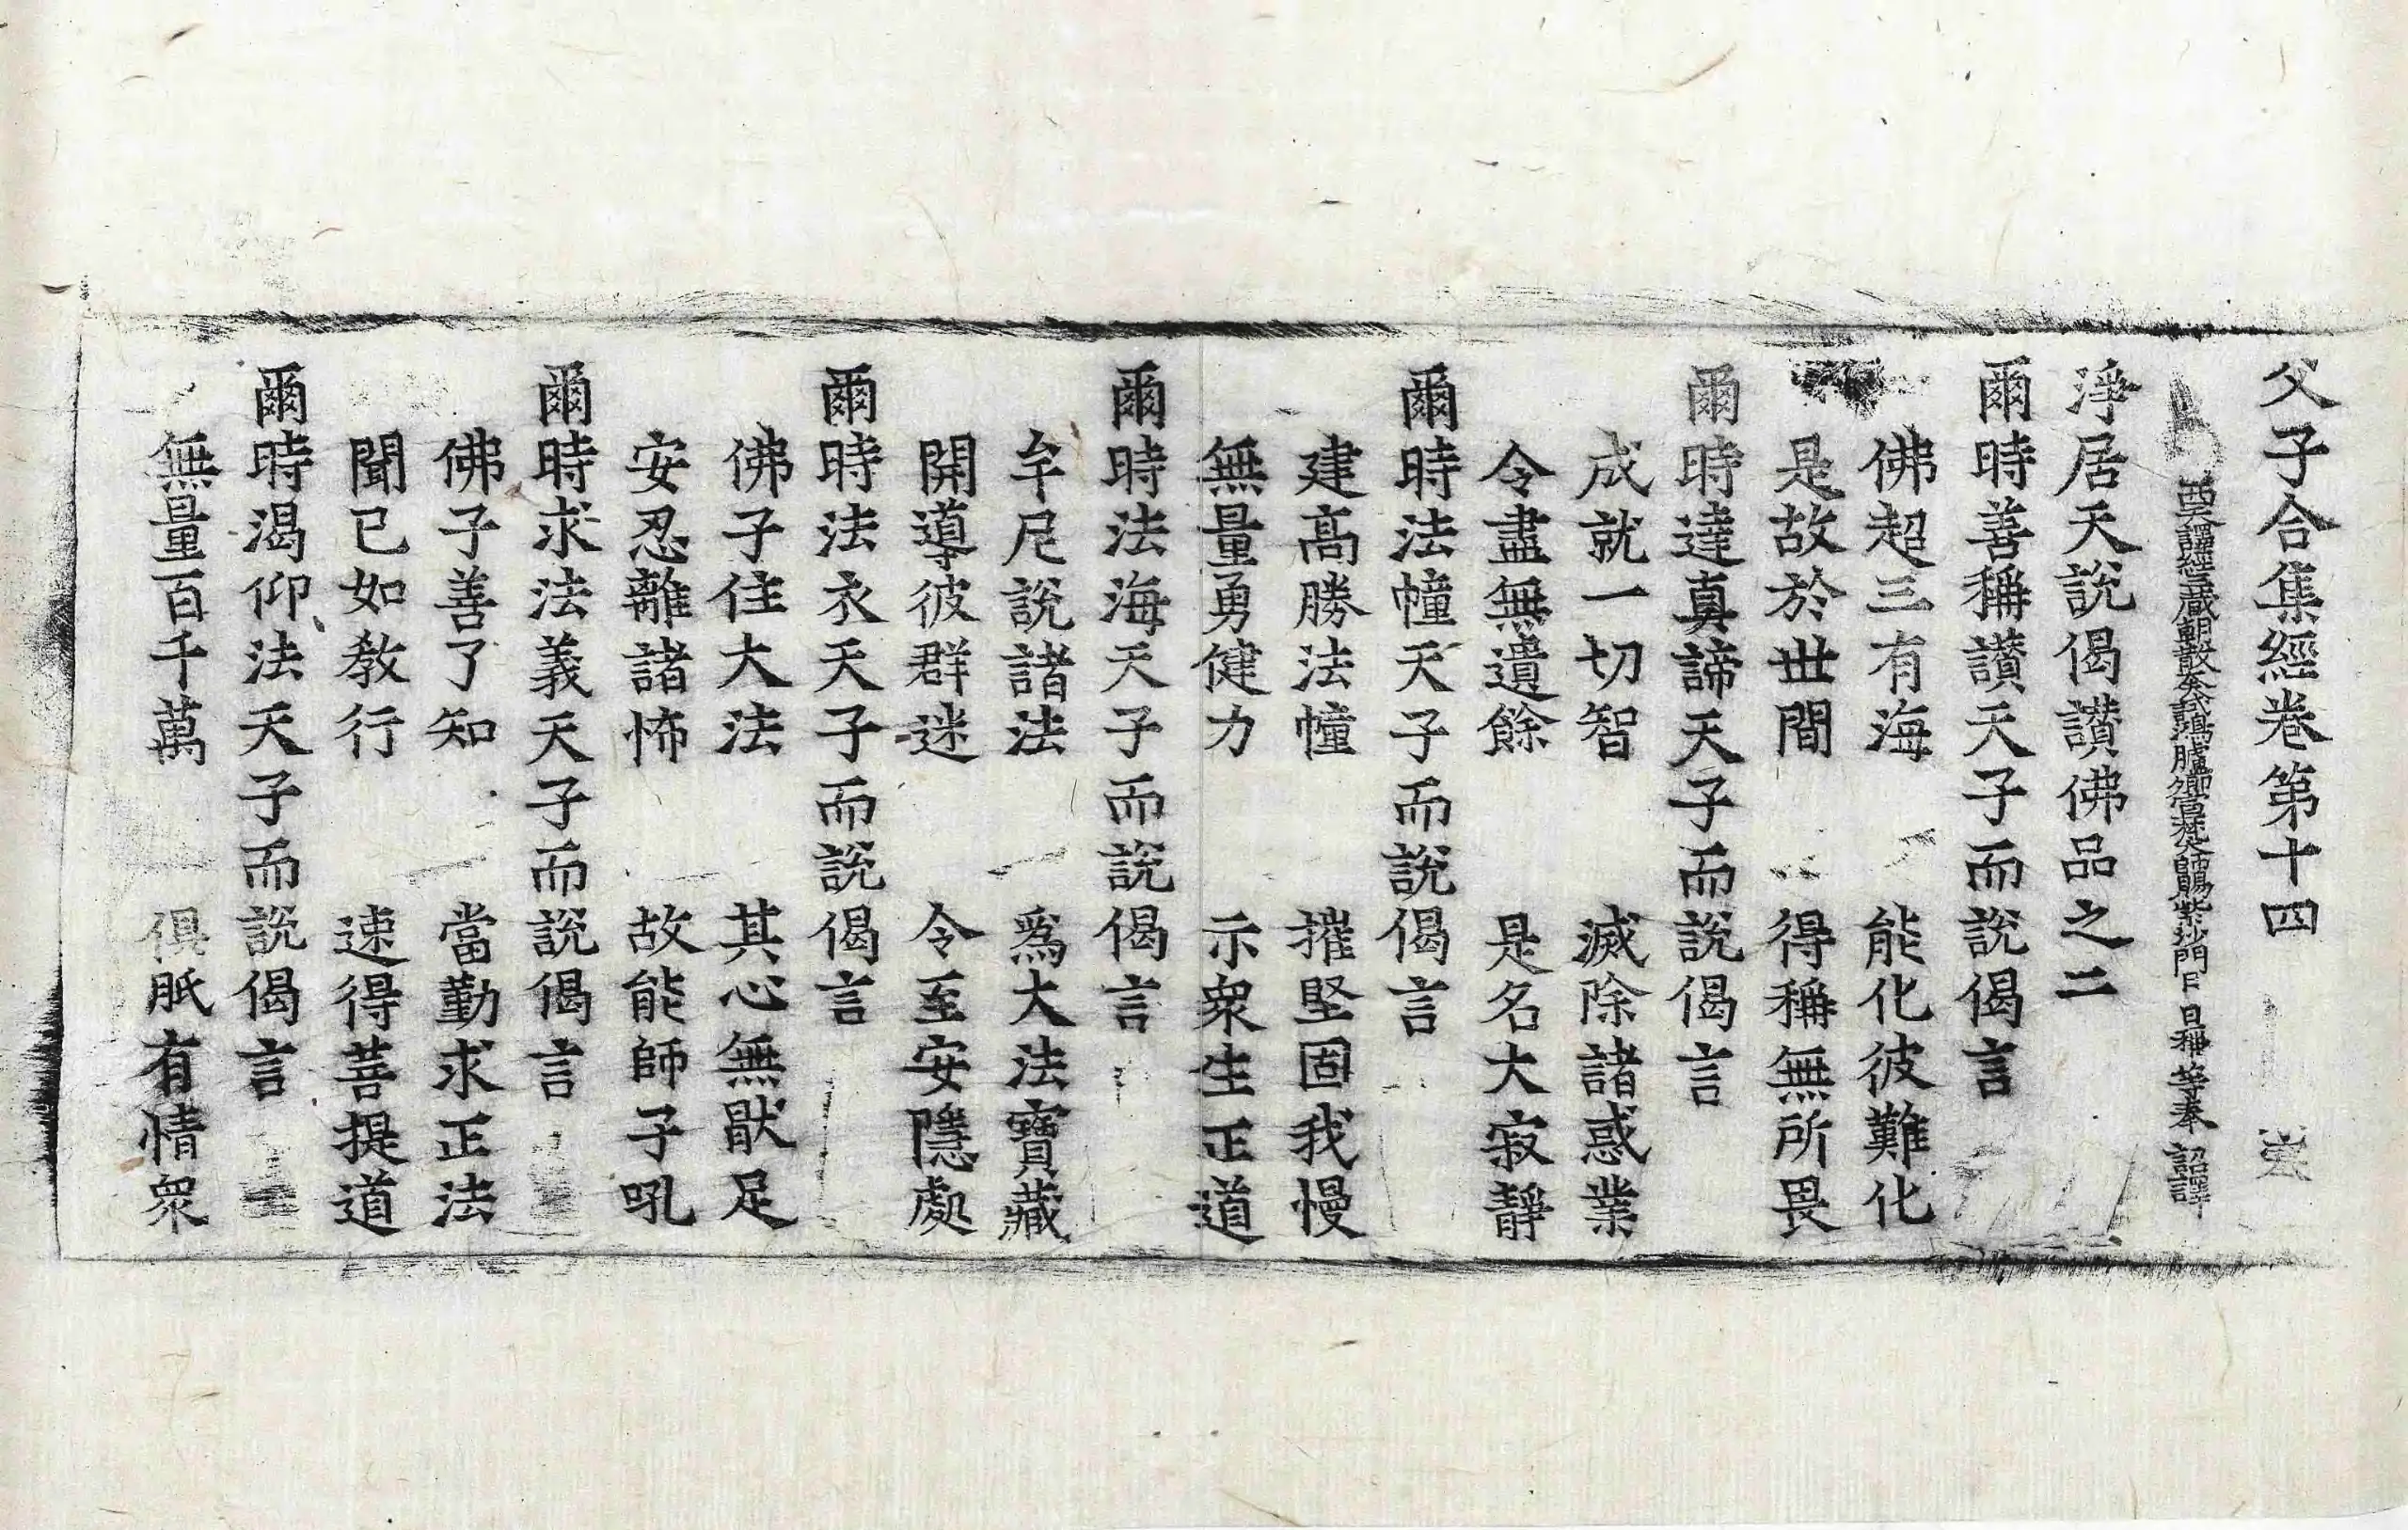 父子合集經卷第十四
西天譯經三藏朝散大夫試鴻臚卿宣梵大師賜紫沙門臣日稱等奉 詔譯
淨居天說偈讃佛品之二
爾時善稱讃天子而說偈言
佛超三有海 能化彼難化
是故於世間 得稱無所畏
爾時達真諦天子而說偈言
成就一切智 滅除諸惑業
令盡無遺餘 是名大寂靜
爾時法幢天子而說偈言
建高勝法幢 摧堅固我慢
無量勇健力 示衆生正道
爾時法海天子而說偈言
牟尼說諸法 爲大法寶藏
開導彼群迷 令至安隱處
爾時法衣天子而說偈言
佛子住大法 其心無猒足
安忍離諸怖 故能師子吼
爾時求法義天子而說偈言
佛子善了知 當勤求正法
聞已如教行 速得菩提道
爾時渴仰法天子而說偈言
無量百千萬 俱胝有情衆